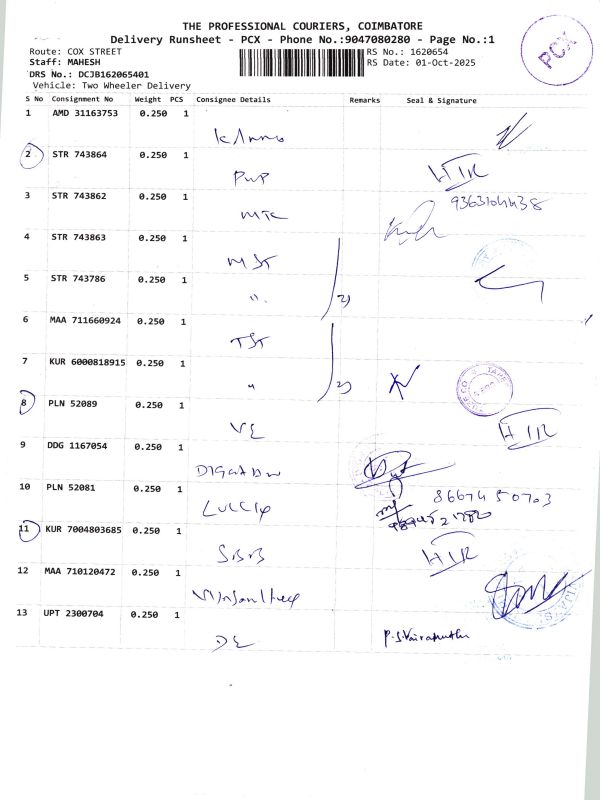 THE PROFESSIONAL COURIERS, COIMBATORE
Delivery Runsheet - PCX - Phone No.:9047080280 - Page No.:1
Route: COX STREET
RS No.: 1620654
Staff: MAHESH
RS Date: 01-Oct-2025
DRS No.: DCJB162065401
Vehicle: Two Wheeler Delivery
PCX
S No Consignment No Weight PCS Consignee Details Remarks Seal & Signature
1 AMD 31163753 0.250 1
2 STR 743864 0.250 1
PWP HIR
3 STR 743862 0.250 1 9363104438
MTC
4 STR 743863 0.250 1
MST
5 STR 743786 0.250 1
" 2)
6 MAA 711660924 0.250 1
TST
7 KUR 6000818915 0.250 1
" 2)
8 PLN 52089 0.250 1
VE HIR
9 DDG 1167054 0.250 1
10 PLN 52081 0.250 1 8667450703
11 KUR 7004803685 0.250 1
SBB HIR
12 MAA 710120472 0.250 1
13 UPT 2300704 0.250 1
DE